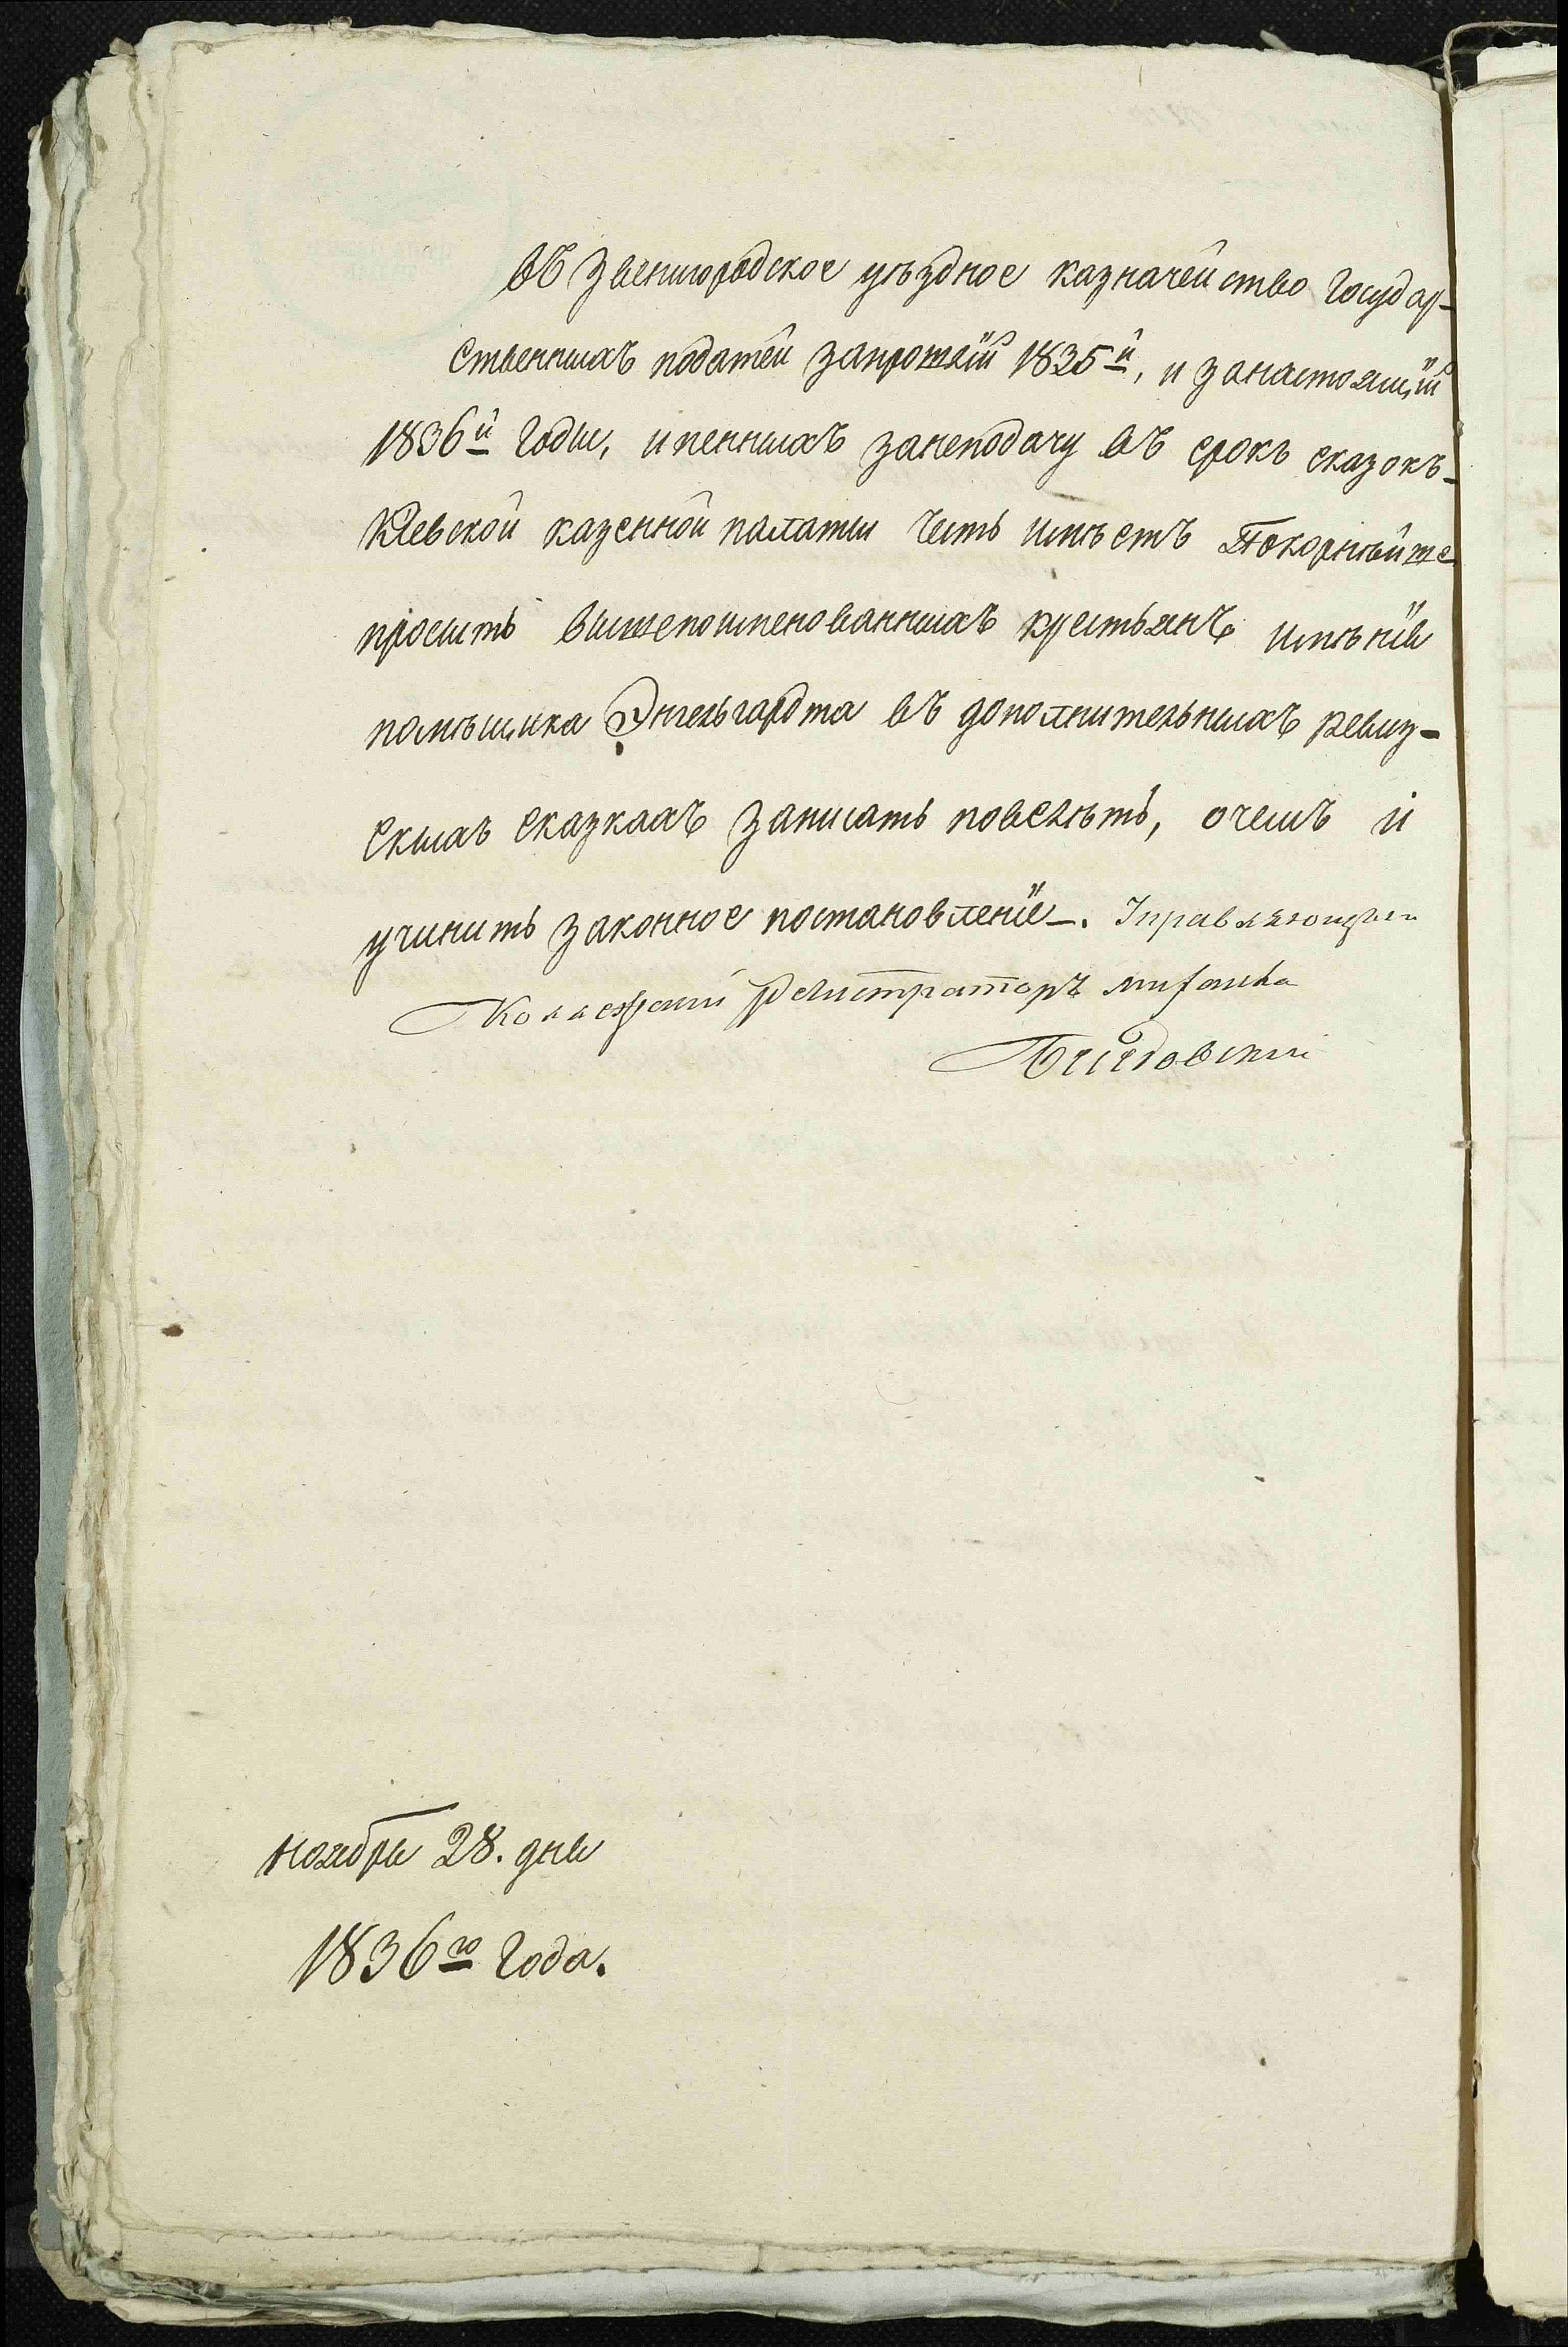 въ Звенигородское уѣздное казначейство Государ-
ственныхъ податей запрошлый 1835й, и занастоящій
1836й годы, ипенныхъ занеподачу въ срокъ сказокъ-
Кіевской казенной палаты честь имѣетъ Покорнѣйше
просить вышепоименованныхъ крестьянъ имѣнія
помѣщика Энгельгардта въ дополнительныхъ ревиз-
скихъ сказкахъ записать повелѣть, очемъ и
учинить законное постановленіе-. Управляющій
Коллежскій Регистраторъ
ноября 28. дня
1836го Года.